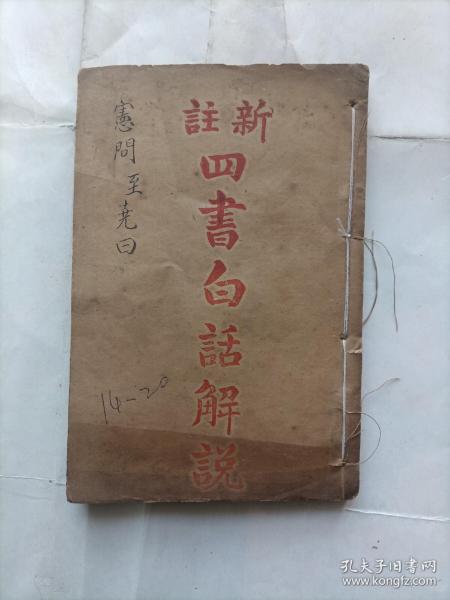 新註
四書白話解說
憲問至堯曰
14-20
孔夫子旧书网
www.kongfz.com